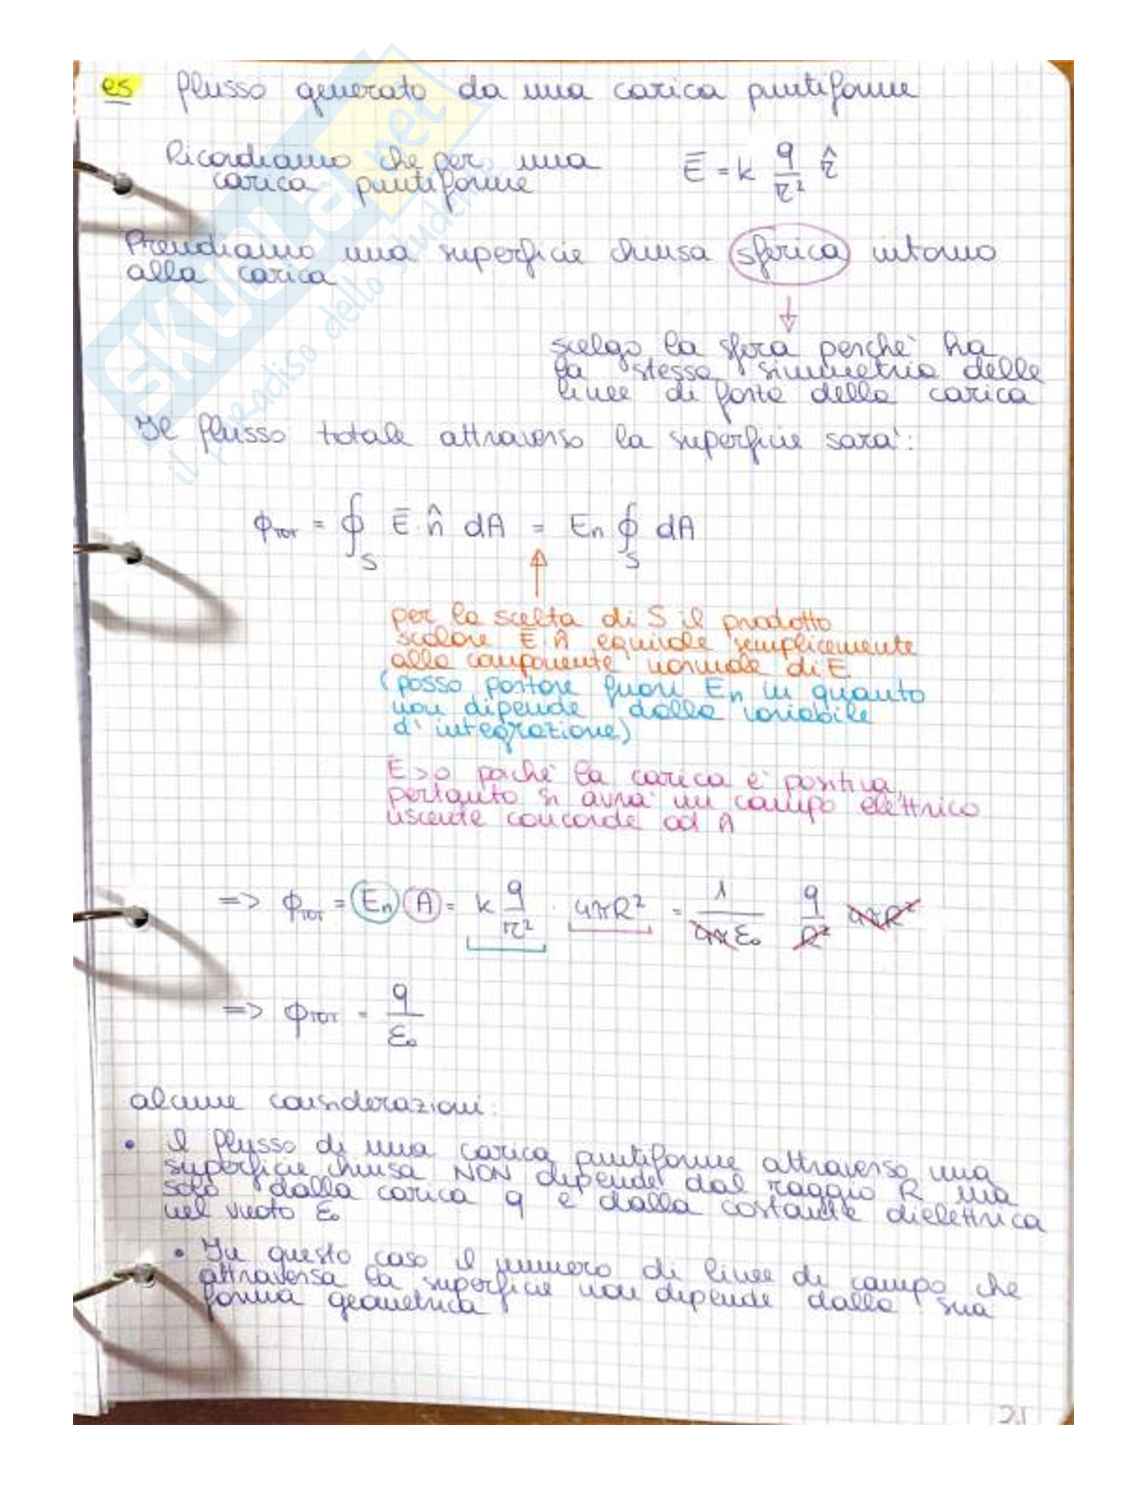 es flusso generato da una carica puntiforme
Ricordiamo che per una
carica puntiforme
Ē = k q/r² r̂
Prendiamo una superficie chiusa sferica intorno
alla carica
scelgo la sfera perchè ha
la stessa simmetria delle
linee di forte della carica
Il flusso totale attraverso la superficie sarà:
ϕTOT = ∮S Ē · n̂ dA = En ∮S dA
per la scelta di S il prodotto
scalare Ē · n̂ equivale semplicemente
alla componente normale di E
(posso portare fuori En in quanto
non dipende dalla variabile
d'integrazione)
E>0 poichè la carica è positiva,
pertanto si avrà un campo elettrico
uscente concorde ad n̂
=> ϕTOT = En A = k q/r² · 4πR² = 1/4πε₀ q/R² 4πR²
=> ϕTOT = q/ε₀
alcune considerazioni:
• il flusso di una carica puntiforme attraverso una
superficie chiusa NON dipende dal raggio R ma
solo dalla carica q e dalla costante dielettrica
nel vuoto ε₀
• In questo caso il numero di linee di campo che
attraversa la superficie non dipende dalla sua
forma geometrica
21
SKUOLA.net
il paradiso dello studente